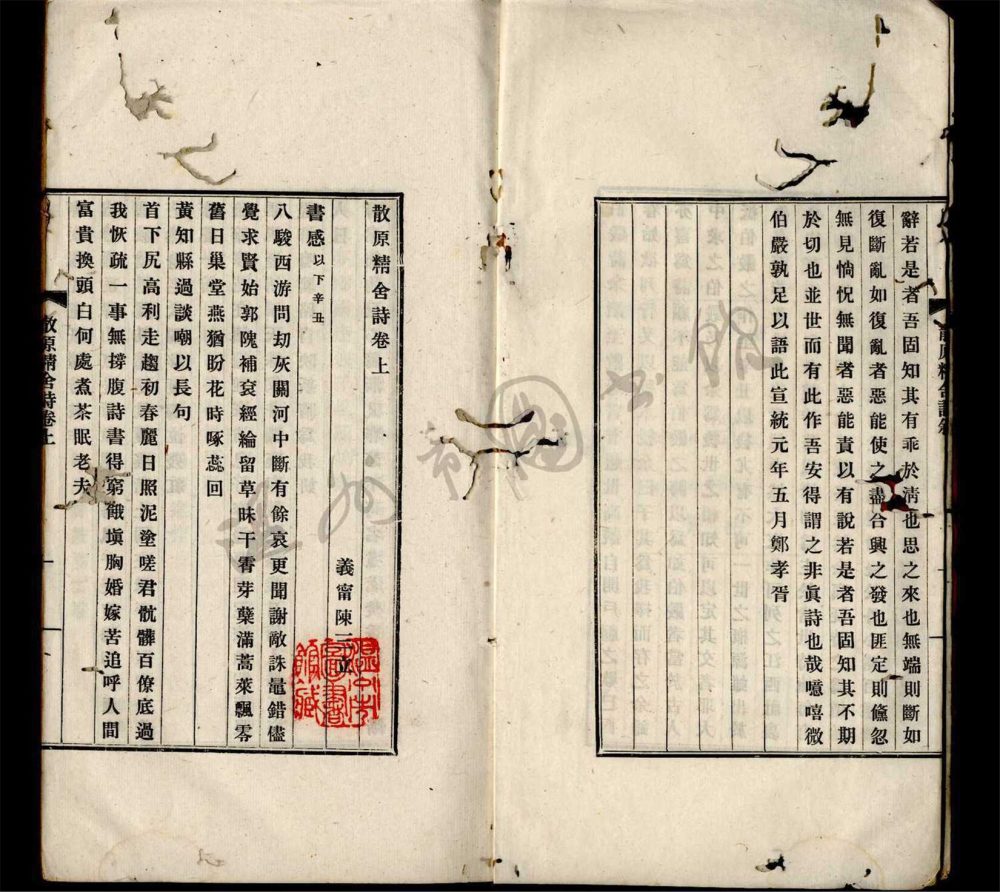 辭若是者吾固知其有乖於淸也思之來也無端則斷如
復斷亂如復亂者惡能使之盡合興之發也匪定則儵忽
無見惝怳無聞者惡能責以有說若是者吾固知其不期
於切也並世而有此作吾安得謂之非眞詩也哉噫嘻微
伯嚴孰足以語此宣統元年五月鄭孝胥
散原精舍詩卷上
義甯陳三立
書感以下辛丑
八駿西游問劫灰關河中斷有餘哀更聞謝敵誅鼂錯儘
覺求賢始郭隗補袞經綸留草昧干霄芽櫱滿蒿萊飄零
舊日巢堂燕猶盼花時啄蕊回
黃知縣過談嘲以長句
首下尻高利走趨初春麗日照泥塗嗟君骯髒百僚底過
我恢疏一事無撐腹詩書得窮餓塡胸婚嫁苦追呼人間
富貴換頭白何處煮茶眠老夫
散原精舍詩卷上
溫州市圖書館藏
溫州市圖書館